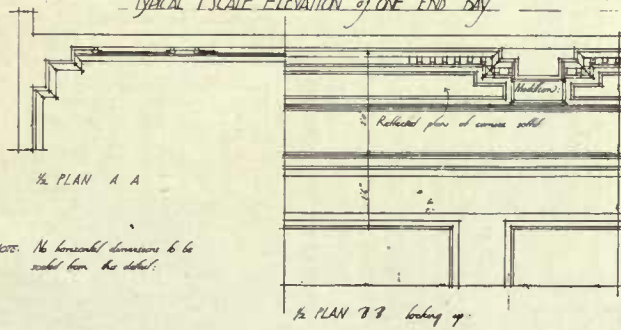 TYPICAL 1" SCALE ELEVATION of ONE END BAY
Modillion:
Reflected plan of cornice soffit
½ PLAN A A
NOTE: No horizontal dimensions to be
scaled from this detail:
½ PLAN B B looking up.